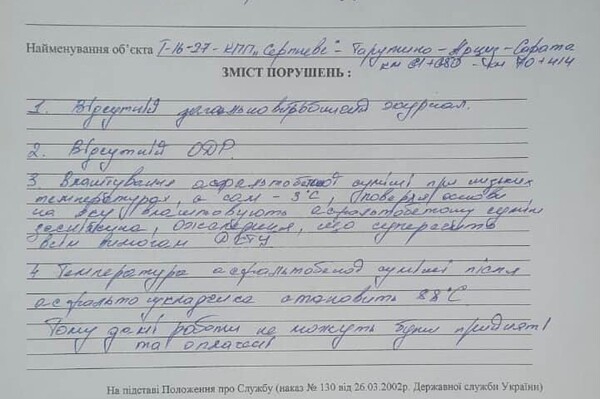 Найменування об'єкта Т-16-27 - КПП „Серпневе" - Тарутино - Арциз - Сарата
км 61+680 - км 70+414
ЗМІСТ ПОРУШЕНЬ :
1. Відсутній загальновиробничий журнал.
2. Відсутній ОДР.
3. Влаштування асфальтобетоної суміші при низьких
температурах, а сам - 3°С, поверхня основи
на яку влаштовують асфальтобетону суміш
засніжена, , що суперечить
всім вимогам ДСТУ
4. Температура асфальтобетоної суміші після
асфальтоукладчика становить 88°С.
Тому дані роботи не можуть бути прийняті
та оплачені
На підставі Положення про Службу (наказ № 130 від 26.03.2002р. Державної служби України)